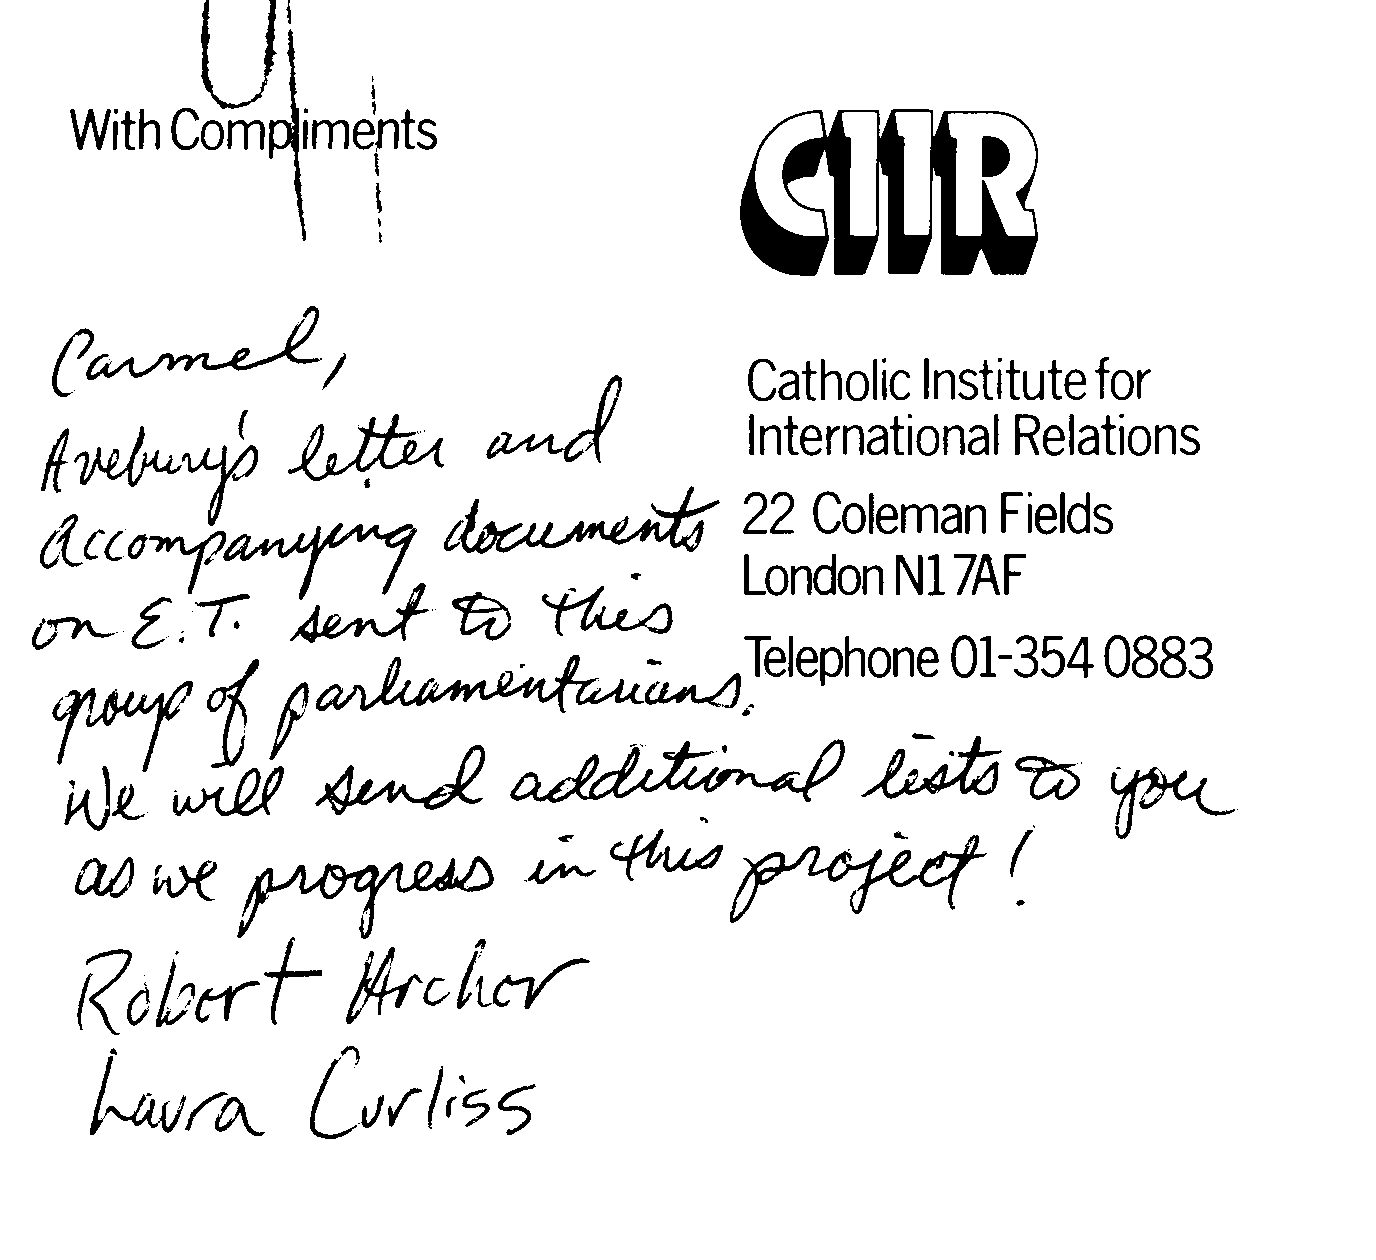 With Compliments
CIIR
Catholic Institute for
International Relations
22 Coleman Fields
London N1 7AF
Telephone 01-354 0883
Carmel,
Avebury's letter and
accompanying documents
on E.T. sent to this
group of parliamentarians.
We will send additional lists to you
as we progress in this project!
Robert Archer
Laura Curliss